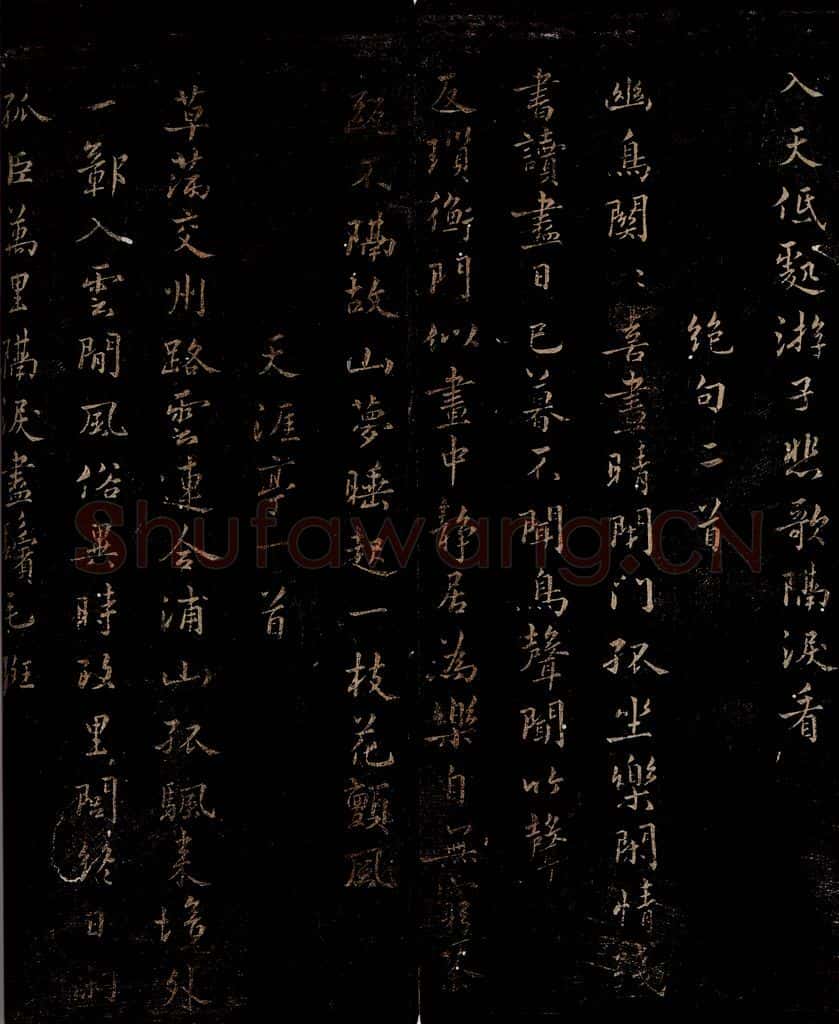 入天低翳游子悲歌隔淚看
絕句二首
幽鳥関〻喜晝晴閉门孤坐樂閑情殘
書讀盡日已暮不聞鳥聲聞竹聲
反瑣衡門似畫中靜居為樂自無窮
不隔故山夢睡起一枝花顫風
天涯亭一首
草荡交州路雲連合浦山孤驅来海外
一鄣入雲間風俗異時改里閭終日
孤臣萬里隔淚盡鬢毛班
Shufawang.CN